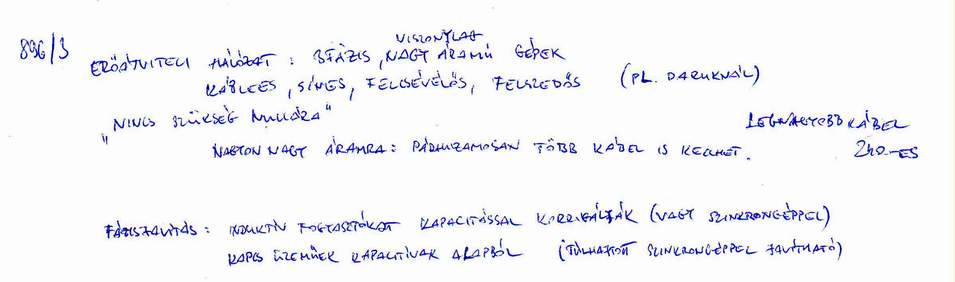 896/3
VISZONYLAG
ERŐÁTVITELI HÁLÓZAT : 3FÁZIS, NAGY ÁRAMÚ GÉPEK
KÁBLES, SÍNES, FELCSÉVÉLŐS, FELSZEDŐS (PL. DARUKNÁL)
„NINCS SZÜKSÉG NULLÁRA"
LEGNAGYOBB KÁBEL
NAGYON NAGY ÁRAMRA : PÁRHUZAMOSAN TÖBB KÁBEL IS KELLHET. 240-ES
FÁZISJAVÍTÁS : INDUKTÍV FOGYASZTÓKAT KAPACITÁSSAL KORRIGÁLJÁK (VAGY SZINKRONGÉPPEL)
ÜZEMŰEK KAPACITÍVAK ALAPBÓL (TÚLHAJTOTT SZINKRONGÉPPEL JAVÍTHATÓ)